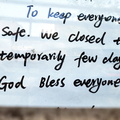 To keep everyone
safe. we closed
temporarily few day
God Bless everyone